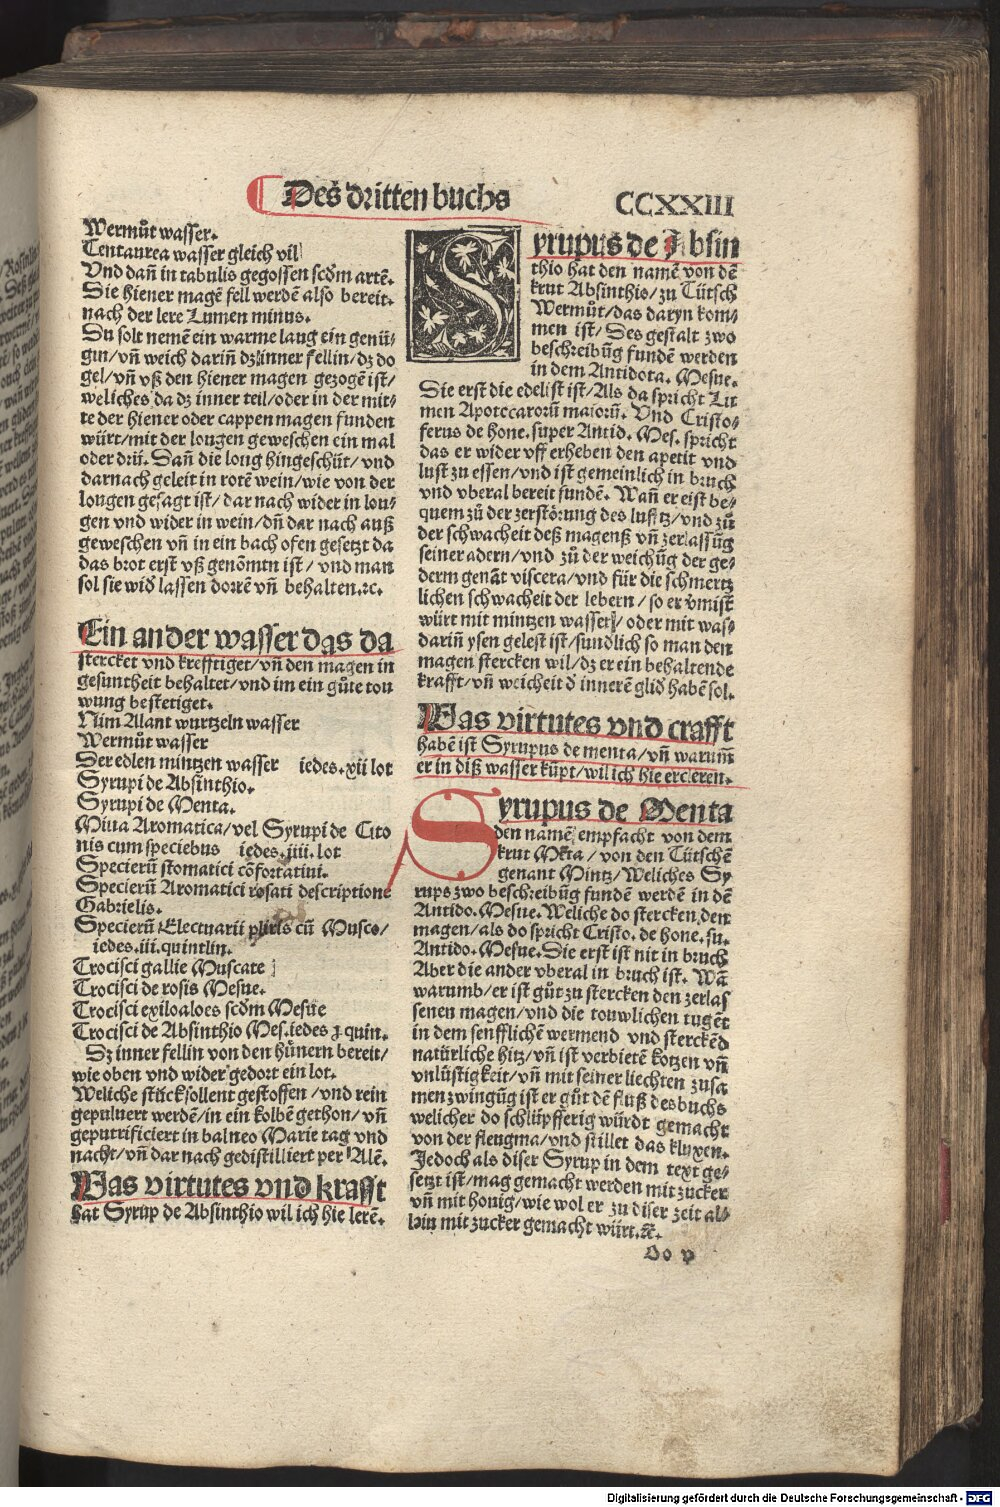 Des dritten buchs CCXXIII
Wermůt wasser.
Centaurea wasser gleich vil
Vnd dañ in tabulis gegossen scd̃m artẽ.
Die hiener magẽ fell werdẽ also bereit.
nach der lere Lumen minus.
Du solt nemẽ ein warme laug ein genü⸗
gin/vñ weich dariñ dz inner fellin/dz do
gel/vñ vß den hiener magen gezogẽ ist/
weliches da dz inner teil/oder in der mit⸗
te der hiener oder cappen magen funden
würt/mit der lougen geweschen ein mal
oder drü. Dañ die loug hingeschüt/vnd
darnach geleit in rotẽ wein/wie von der
lougen gesagt ist/dar nach wider in lou⸗
gen vnd wider in wein/dñ dar nach auß
geweschen vñ in ein bach ofen gesetzt da
das brot erst vß genõmen ist/ vnd man
sol sie wid̃ lassen dorrẽ vñ behalten.ꝛc.
Ein ander wasser das da
stercket vnd krefftiget/vñ den magen in
gesuntheit behaltet/vnd im ein gůte tou
wung bestetiget.
Nim Alant wurtzeln wasser
Wermůt wasser
Der edlen mintzen wasser iedes.xii lot
Syrupi de Absinthio.
Syrupi de Menta.
Miua Aromatica/vel Syrupi de Cito
nis cum speciebus iedes.iiii.lot
Specierũ stomatici cõfortatiui.
Specierũ Aromatici rosati descriptione
Gabrielis.
Specierũ Electuarii pliris cũ Musco/
iedes.iii.quintlin.
Trocisci gallie Muscate
Trocisci de rosis Mesue.
Trocisci exiloaloes scd̃m Mesue
Trocisci de Absinthio Mes.iedes ꝫ quin.
Dz inner fellin von den hünern bereit/
wie oben vnd wider gedort ein lot.
Weliche stück sollent gestossen/vnd rein
gepuluert werdẽ/in ein kolbẽ gethon/vñ
geputrificiert in balneo Marie tag vnd
nacht/vñ dar nach gedistilliert per Alẽ.
Was virtutes vnd krafft
hat Syrup de Absinthio wil ich hie lerẽ.
Syrupus de Absin
thio hat den namẽ von dẽ
krut Absinthio/zu Tütsch
Wermůt/das daryn kom⸗
men ist/ Des gestalt zwo
beschreibũg fundẽ werden
in dem Antidota. Mesue.
Die erst die edelist ist/Als da spricht Lu
men Apotecarorũ maiorũ. Vnd Cristo⸗
ferus de hone.super Antid. Mes. spricht
das er wider vff erheben den apetit vnd
lust zu essen/vnd ist gemeinlich in bruch
vnd vberal bereit fundẽ. Wañ er eist be⸗
quem zů der zerstörung des lufftz/vnd zů
der schwacheit deß magenß vñ zerlassũg
seiner adern/vnd zů der weichũg der ge⸗
derm genãt viscera/vnd für die schmertz
lichen schwacheit der lebern/so er v̈mist
würt mit mintzen wasser/oder mit was⸗
dariñ ysen gelest ist/sundlich so man den
magen stercken wil/dz er ein behaltende
krafft/vñ weicheit d̃ innerẽ glid̃ habẽ sol.
Was virtutes vnd crafft
habẽ ist Syrupus de menta/vñ warum̃
er in diß wasser kũpt/wil ich hie ercleren.
Syrupus de Menta
den namẽ empfacht von dem
krut Mẽta/von den Tütschẽ
genant Mintz/Weliches Sy
rups zwo beschreibũg fundẽ werdẽ in dẽ
Antido.Mesue.Weliche do stercken den
magen/als do spricht Cristo.de hone.su.
Antido.Mesue.Die erst ist nit in bruch
Aber die ander vberal in bruch ist. Wã
warumb/er ist gůt zu stercken den zerlas
senen magen/vnd die touwlichen tugẽt
in dem senfflichẽ wermend vnd sterckẽd
natürliche hitz/vñ ist verbietẽ kotzen vñ
vnlüstigkeit/vñ mit seiner liechten zusa
men zwingũg ist er gůt dẽ fluß des buchs
welicher do schlüpfferig würdt gemacht
von der fleugma/vnd stillet das kluxen.
Jedoch als diser Syrup in dem text ge⸗
setzt ist/mag gemacht werden mit zucker
vñ mit honig/wie wol er zu diser zeit al⸗
lein mit zucker gemacht würt.ꝛc.
Oo v
Digitalisierung gefördert durch die Deutsche Forschungsgemeinschaft - DFG